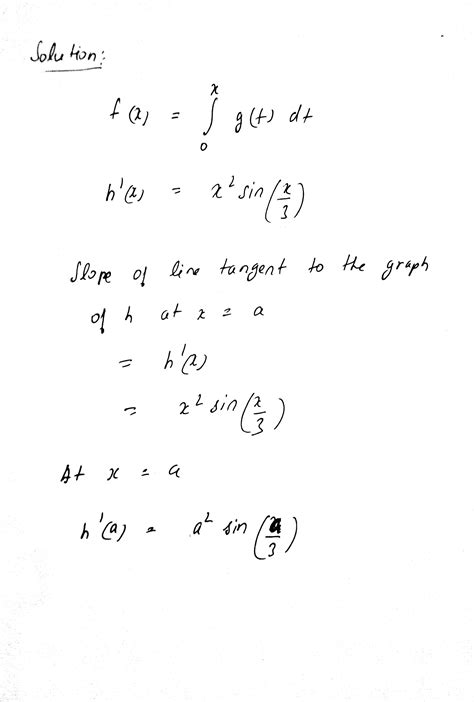 Solution:
f(x) = ∫₀ˣ g(t) dt
h'(x) = x² sin(x/3)
Slope of line tangent to the graph
of h at x = a
= h'(x)
= x² sin(x/3)
At x = a
h'(a) = a² sin(a/3)